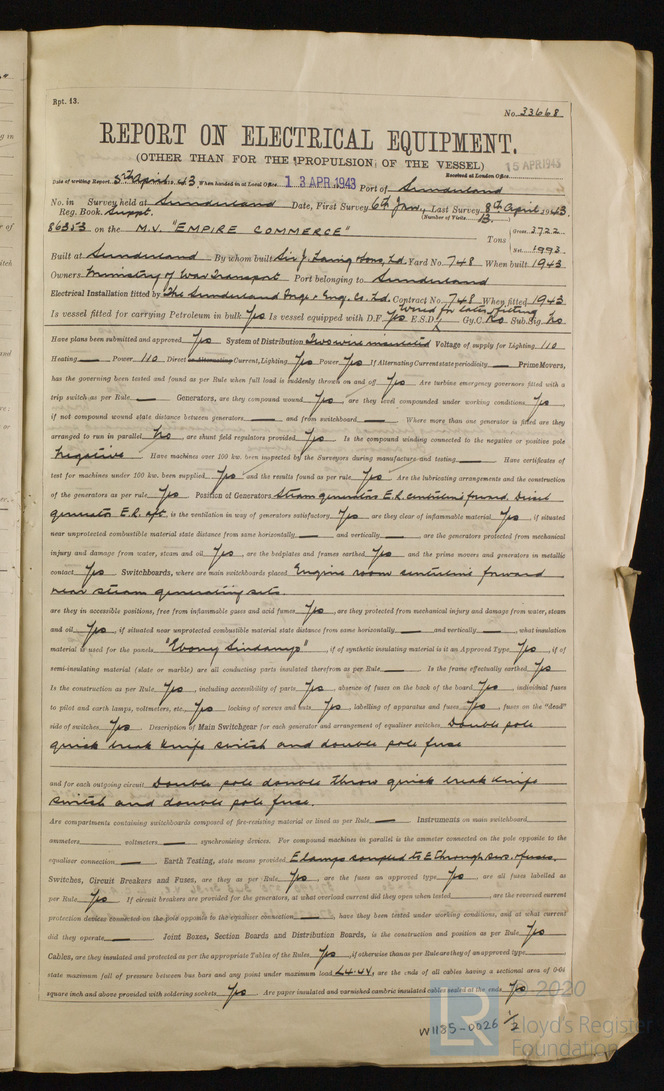 Rpt. 13.
No. 33668
REPORT ON ELECTRICAL EQUIPMENT.
(OTHER THAN FOR THE (PROPULSION) OF THE VESSEL)
15 APR 1943
Date of writing Report 5th April 1943 When handed in at Local Office 13 APR. 1943 Port of Sunderland Received at London Office
No. in Survey held at Sunderland Date, First Survey 6th Jan., Last Survey 8th April 1943
Reg. Book. Suppt. (Number of Visits 13.)
86353 on the M.V. "EMPIRE COMMERCE" Tons { Gross 3722
Net 1993
Built at Sunderland By whom built Sir J. Laing & Sons, Ld. Yard No. 748 When built 1943
Owners Ministry of War Transport Port belonging to Sunderland
Electrical Installation fitted by The Sunderland Forge & Eng. Co. Ld. Contract No. 748 When fitted 1943
Is vessel fitted for carrying Petroleum in bulk Yes Is vessel equipped with D.F. Yes E.S.D. Wired for later fitting Gy.C. No Sub.Sig. No
Have plans been submitted and approved Yes System of Distribution Two wire insulated Voltage of supply for Lighting 110
Heating — Power 110 Direct or Alternating Current, Lighting Yes Power Yes If Alternating Current state periodicity — Prime Movers,
has the governing been tested and found as per Rule when full load is suddenly thrown on and off Yes Are turbine emergency governors fitted with a
trip switch as per Rule — Generators, are they compound wound Yes are they level compounded under working conditions Yes,
if not compound wound state distance between generators — and from switchboard — Where more than one generator is fitted are they
arranged to run in parallel No, are shunt field regulators provided Yes Is the compound winding connected to the negative or positive pole
Negative Have machines over 100 kw. been inspected by the Surveyors during manufacture and testing — Have certificates of
test for machines under 100 kw. been supplied Yes and the results found as per rule Yes Are the lubricating arrangements and the construction
of the generators as per rule Yes Position of Generators Steam generators E.R. centreline forward. Diesel
generator E.R. aft is the ventilation in way of generators satisfactory Yes are they clear of inflammable material Yes, if situated
near unprotected combustible material state distance from same horizontally — and vertically —, are the generators protected from mechanical
injury and damage from water, steam and oil Yes, are the bedplates and frames earthed Yes and the prime movers and generators in metallic
contact Yes Switchboards, where are main switchboards placed Engine room centreline forward
near steam generating sets.
are they in accessible positions, free from inflammable gases and acid fumes Yes, are they protected from mechanical injury and damage from water, steam
and oil Yes, if situated near unprotected combustible material state distance from same horizontally — and vertically —, what insulation
material is used for the panels "Ebony Sindanyo", if of synthetic insulating material is it an Approved Type Yes, if of
semi-insulating material (slate or marble) are all conducting parts insulated therefrom as per Rule — Is the frame effectually earthed Yes
Is the construction as per Rule Yes, including accessibility of parts Yes, absence of fuses on the back of the board Yes, individual fuses
to pilot and earth lamps, voltmeters, etc. Yes, locking of screws and nuts Yes, labelling of apparatus and fuses Yes, fuses on the "dead"
side of switches Yes. Description of Main Switchgear for each generator and arrangement of equaliser switches Double pole
quick break knife switch and double pole fuse
and for each outgoing circuit Double pole double throw quick break knife
switch and double pole fuse.
Are compartments containing switchboards composed of fire-resisting material or lined as per Rule — Instruments on main switchboard
ammeters voltmeters — synchronising devices. For compound machines in parallel is the ammeter connected on the pole opposite to the
equaliser connection — Earth Testing, state means provided E lamps coupled to E through sws. & fuses.
Switches, Circuit Breakers and Fuses, are they as per Rule Yes, are the fuses an approved type Yes, are all fuses labelled as
per Rule Yes If circuit breakers are provided for the generators, at what overload current did they open when tested , are the reversed current
protection devices connected on the pole opposite to the equaliser connection —, have they been tested under working conditions, and at what current
did they operate — Joint Boxes, Section Boards and Distribution Boards, is the construction and position as per Rule Yes
Cables, are they insulated and protected as per the appropriate Tables of the Rules Yes, if otherwise than as per Rule are they of an approved type
state maximum fall of pressure between bus bars and any point under maximum load 4.4v, are the ends of all cables having a sectional area of 0.04
square inch and above provided with soldering sockets Yes Are paper insulated and varnished cambric insulated cables sealed at the ends Yes
W1135-0026 1/2
LR
© 2020
Lloyd's Register
Foundation